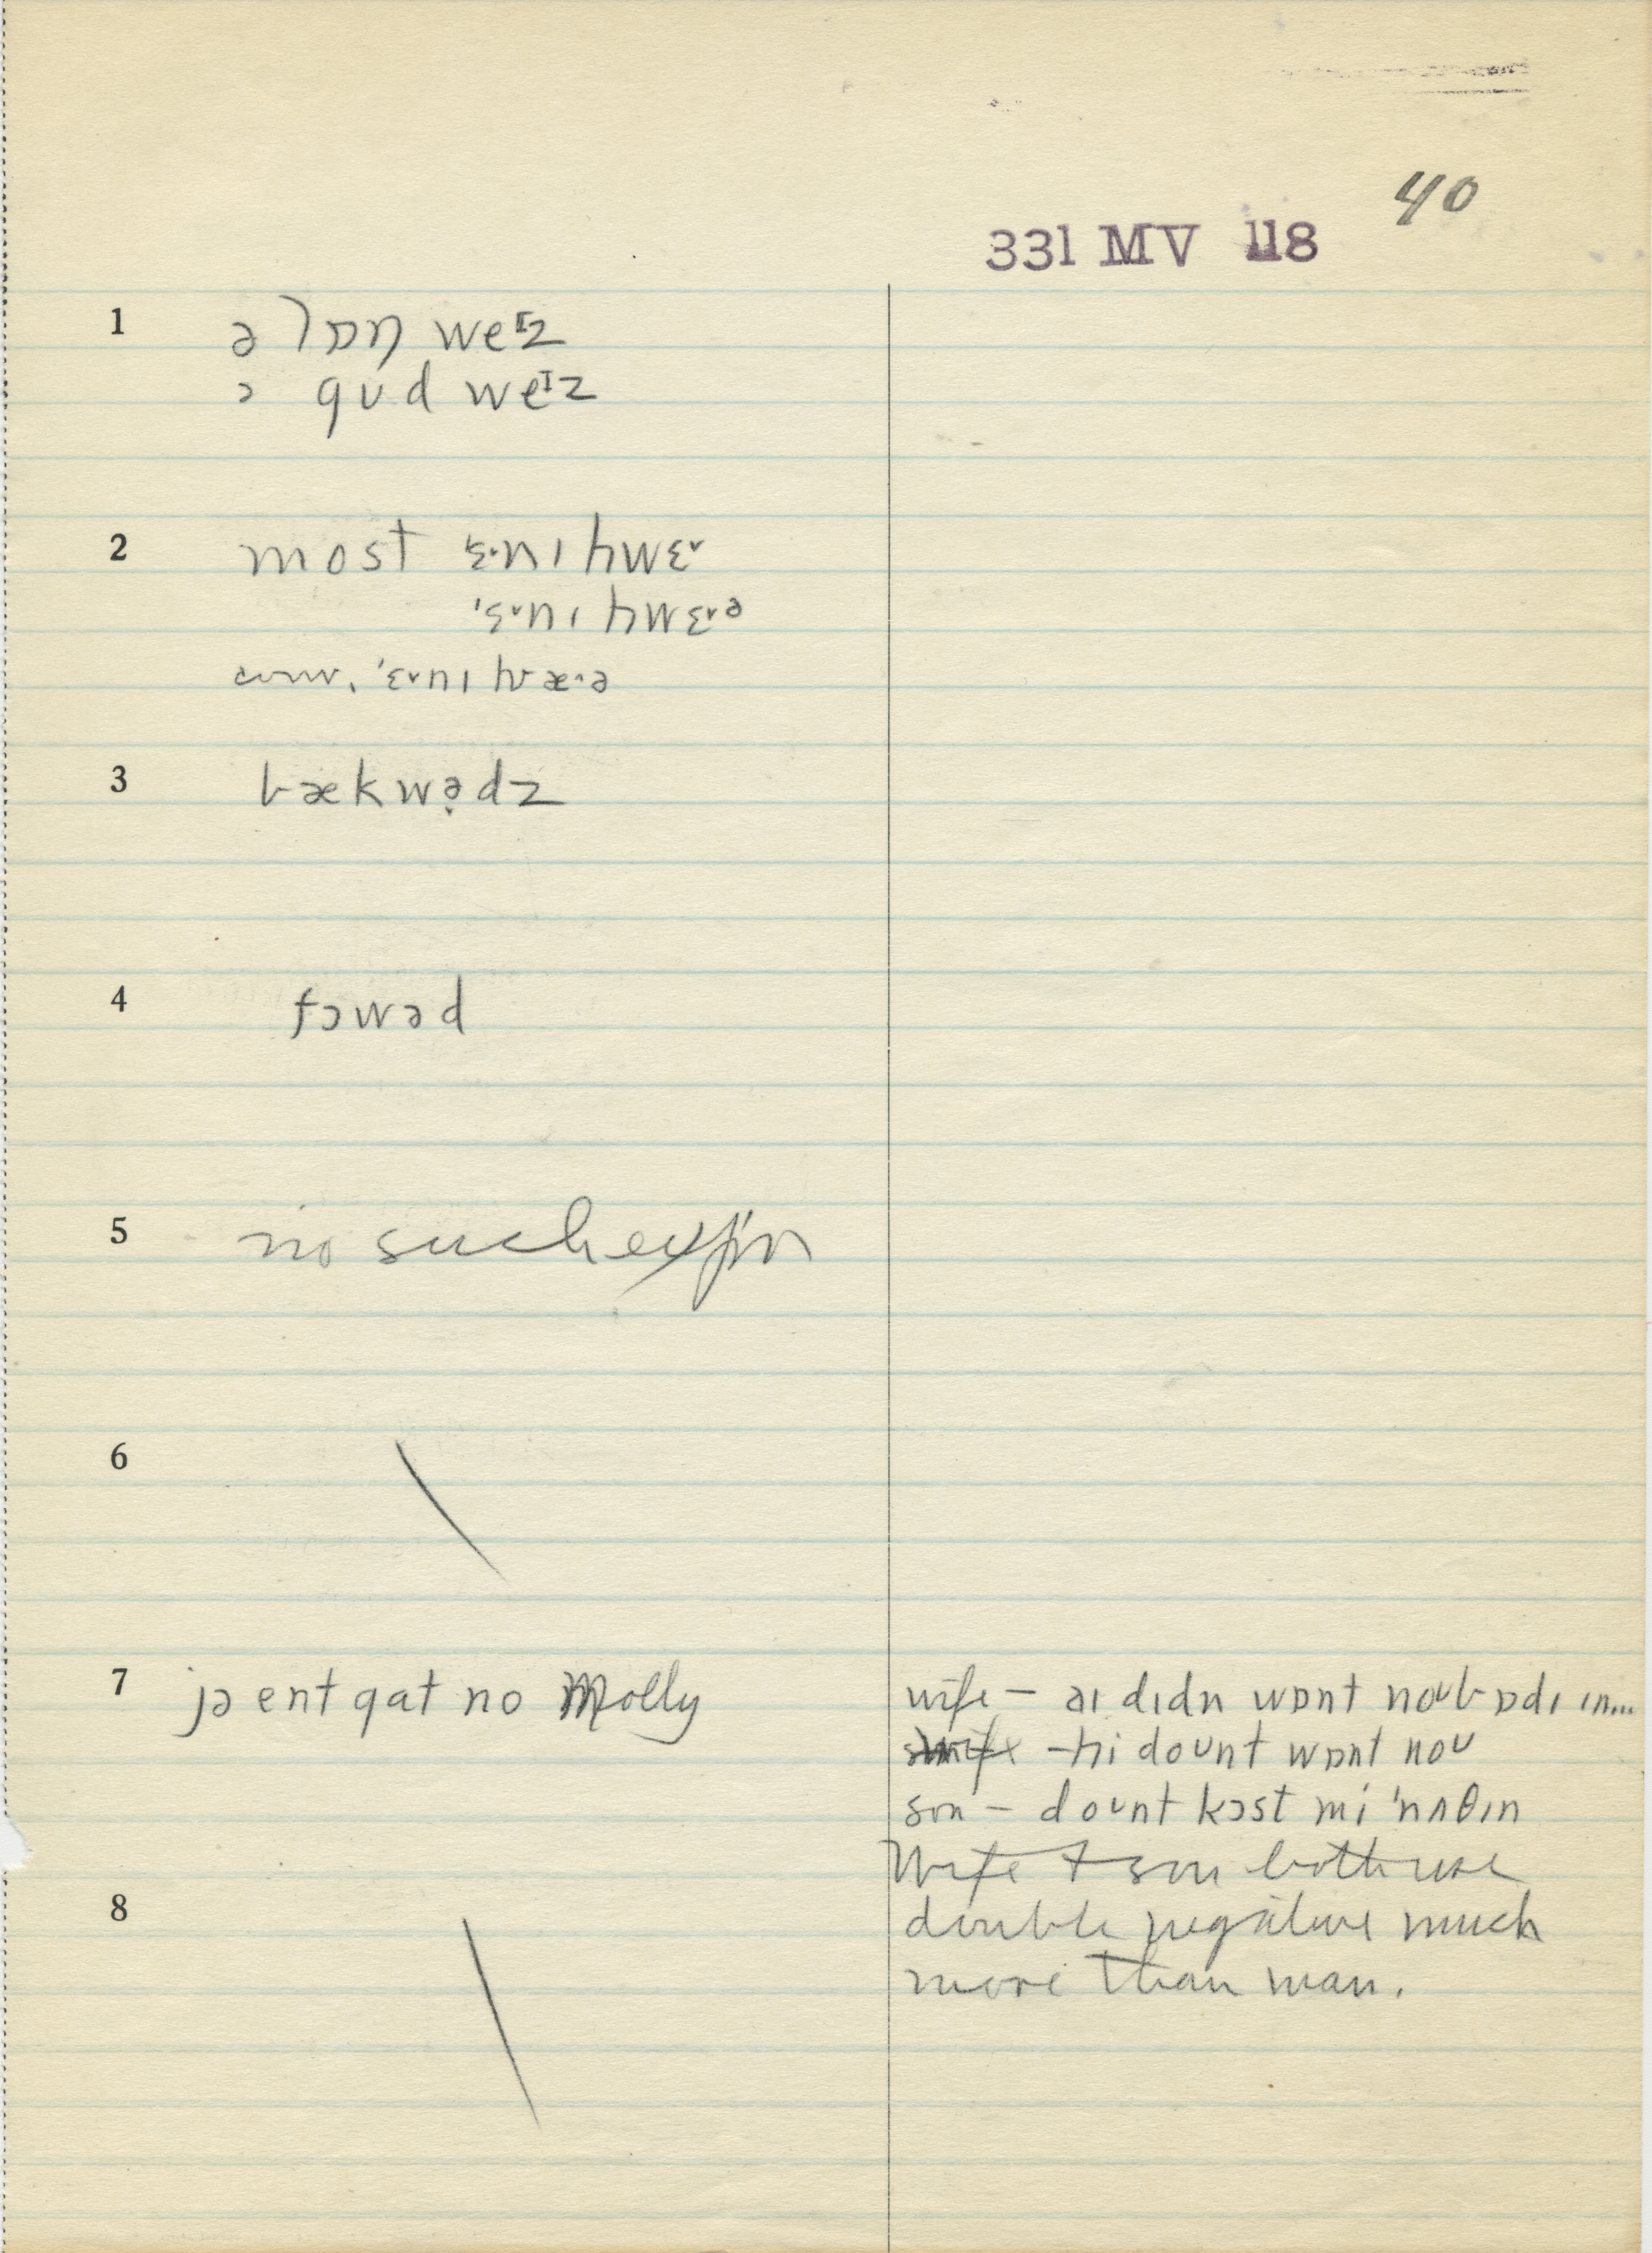 40
331 MV 118
1 ə lɒŋ weɪz
ə gʊd weɪz
2 most ˈɛ˅nɪhwɛ˅
ˈɛ˅nɪhwɛ˅ə
conv. ˈɛ˅nɪhwæ˄ə
3 bækwə̣dz
4 fɔwəd
5 no such exp'n
6
7 jə ent gat no Molly
wife – aɪ dɪdn wɒnt noʊbɒdɪ ɪn...
– hi doʊnt wɒnt noʊ
son – doʊnt kɔst mi ˈnʌθɪn
Wife + son both use
8
double negative much
more than man.